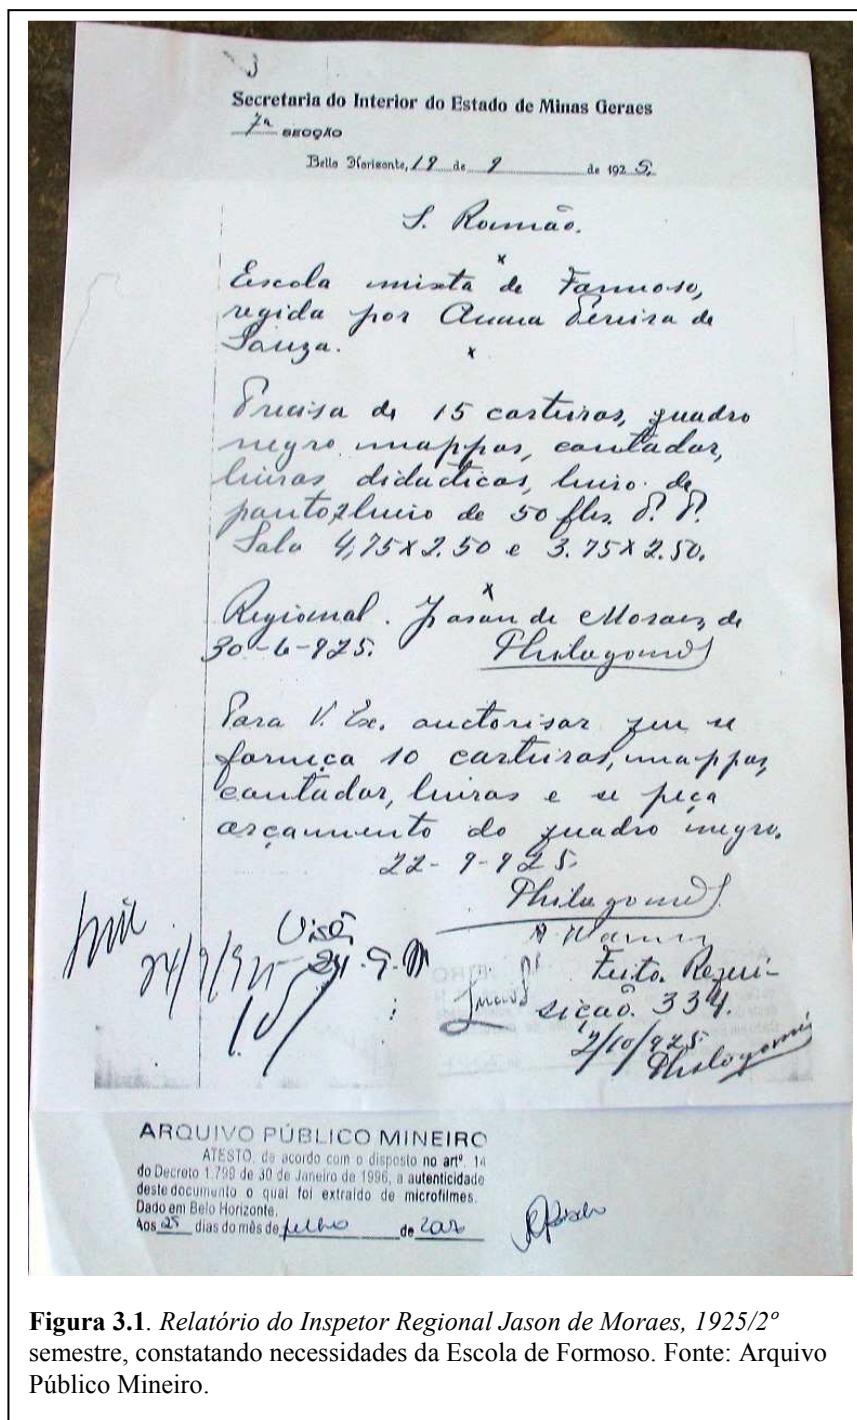 Secretaria do Interior do Estado de Minas Geraes
7a SECÇÃO
Bello Horizonte, 19 de 9 de 1925.
S. Romão.
Escola mixta de Formoso,
regida por Anna Pereira de
Souza.
Precisa de 15 carteiras, quadro
negro, mappas, contador,
livros didacticos, livro de
ponto, livro de 50 fls. P. P.
Sala 4,75 x 2.50 e 3.75 x 2.50.
Regional. Jason de Moraes, de
30-6-925. Philogomes
Para V. Ex. auctorisar que se
forneça 10 carteiras, mappas,
contador, livros e se peça
orçamento do quadro negro.
22-9-925.
Philogomes
Visto
24/9/925 24.9.
Feito. Requi-
sição. 334.
2/10/925
Philogomes
ARQUIVO PÚBLICO MINEIRO
ATESTO, de acordo com o disposto no artº. 14
do Decreto 1.799 de 30 de Janeiro de 1996, a autenticidade
deste documento o qual foi extraído de microfilmes.
Dado em Belo Horizonte.
Aos 25 dias do mês de julho de
Figura 3.1. Relatório do Inspetor Regional Jason de Moraes, 1925/2º
semestre, constatando necessidades da Escola de Formoso. Fonte: Arquivo
Público Mineiro.